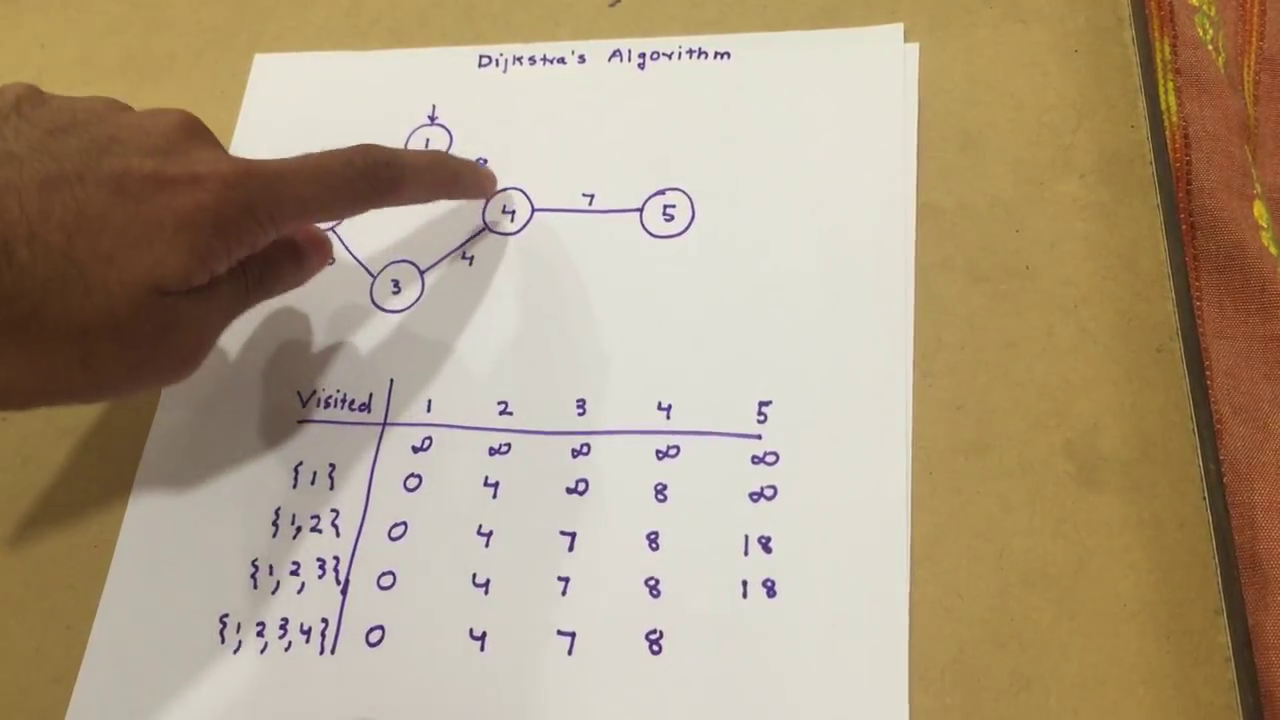 Dijkstra's Algorithm
1
4 7 5
4
3
Visited 1 2 3 4 5
∞ ∞ ∞ ∞ ∞
{1} 0 4 ∞ 8 ∞
{1,2} 0 4 7 8 18
{1,2,3} 0 4 7 8 18
{1,2,3,4} 0 4 7 8